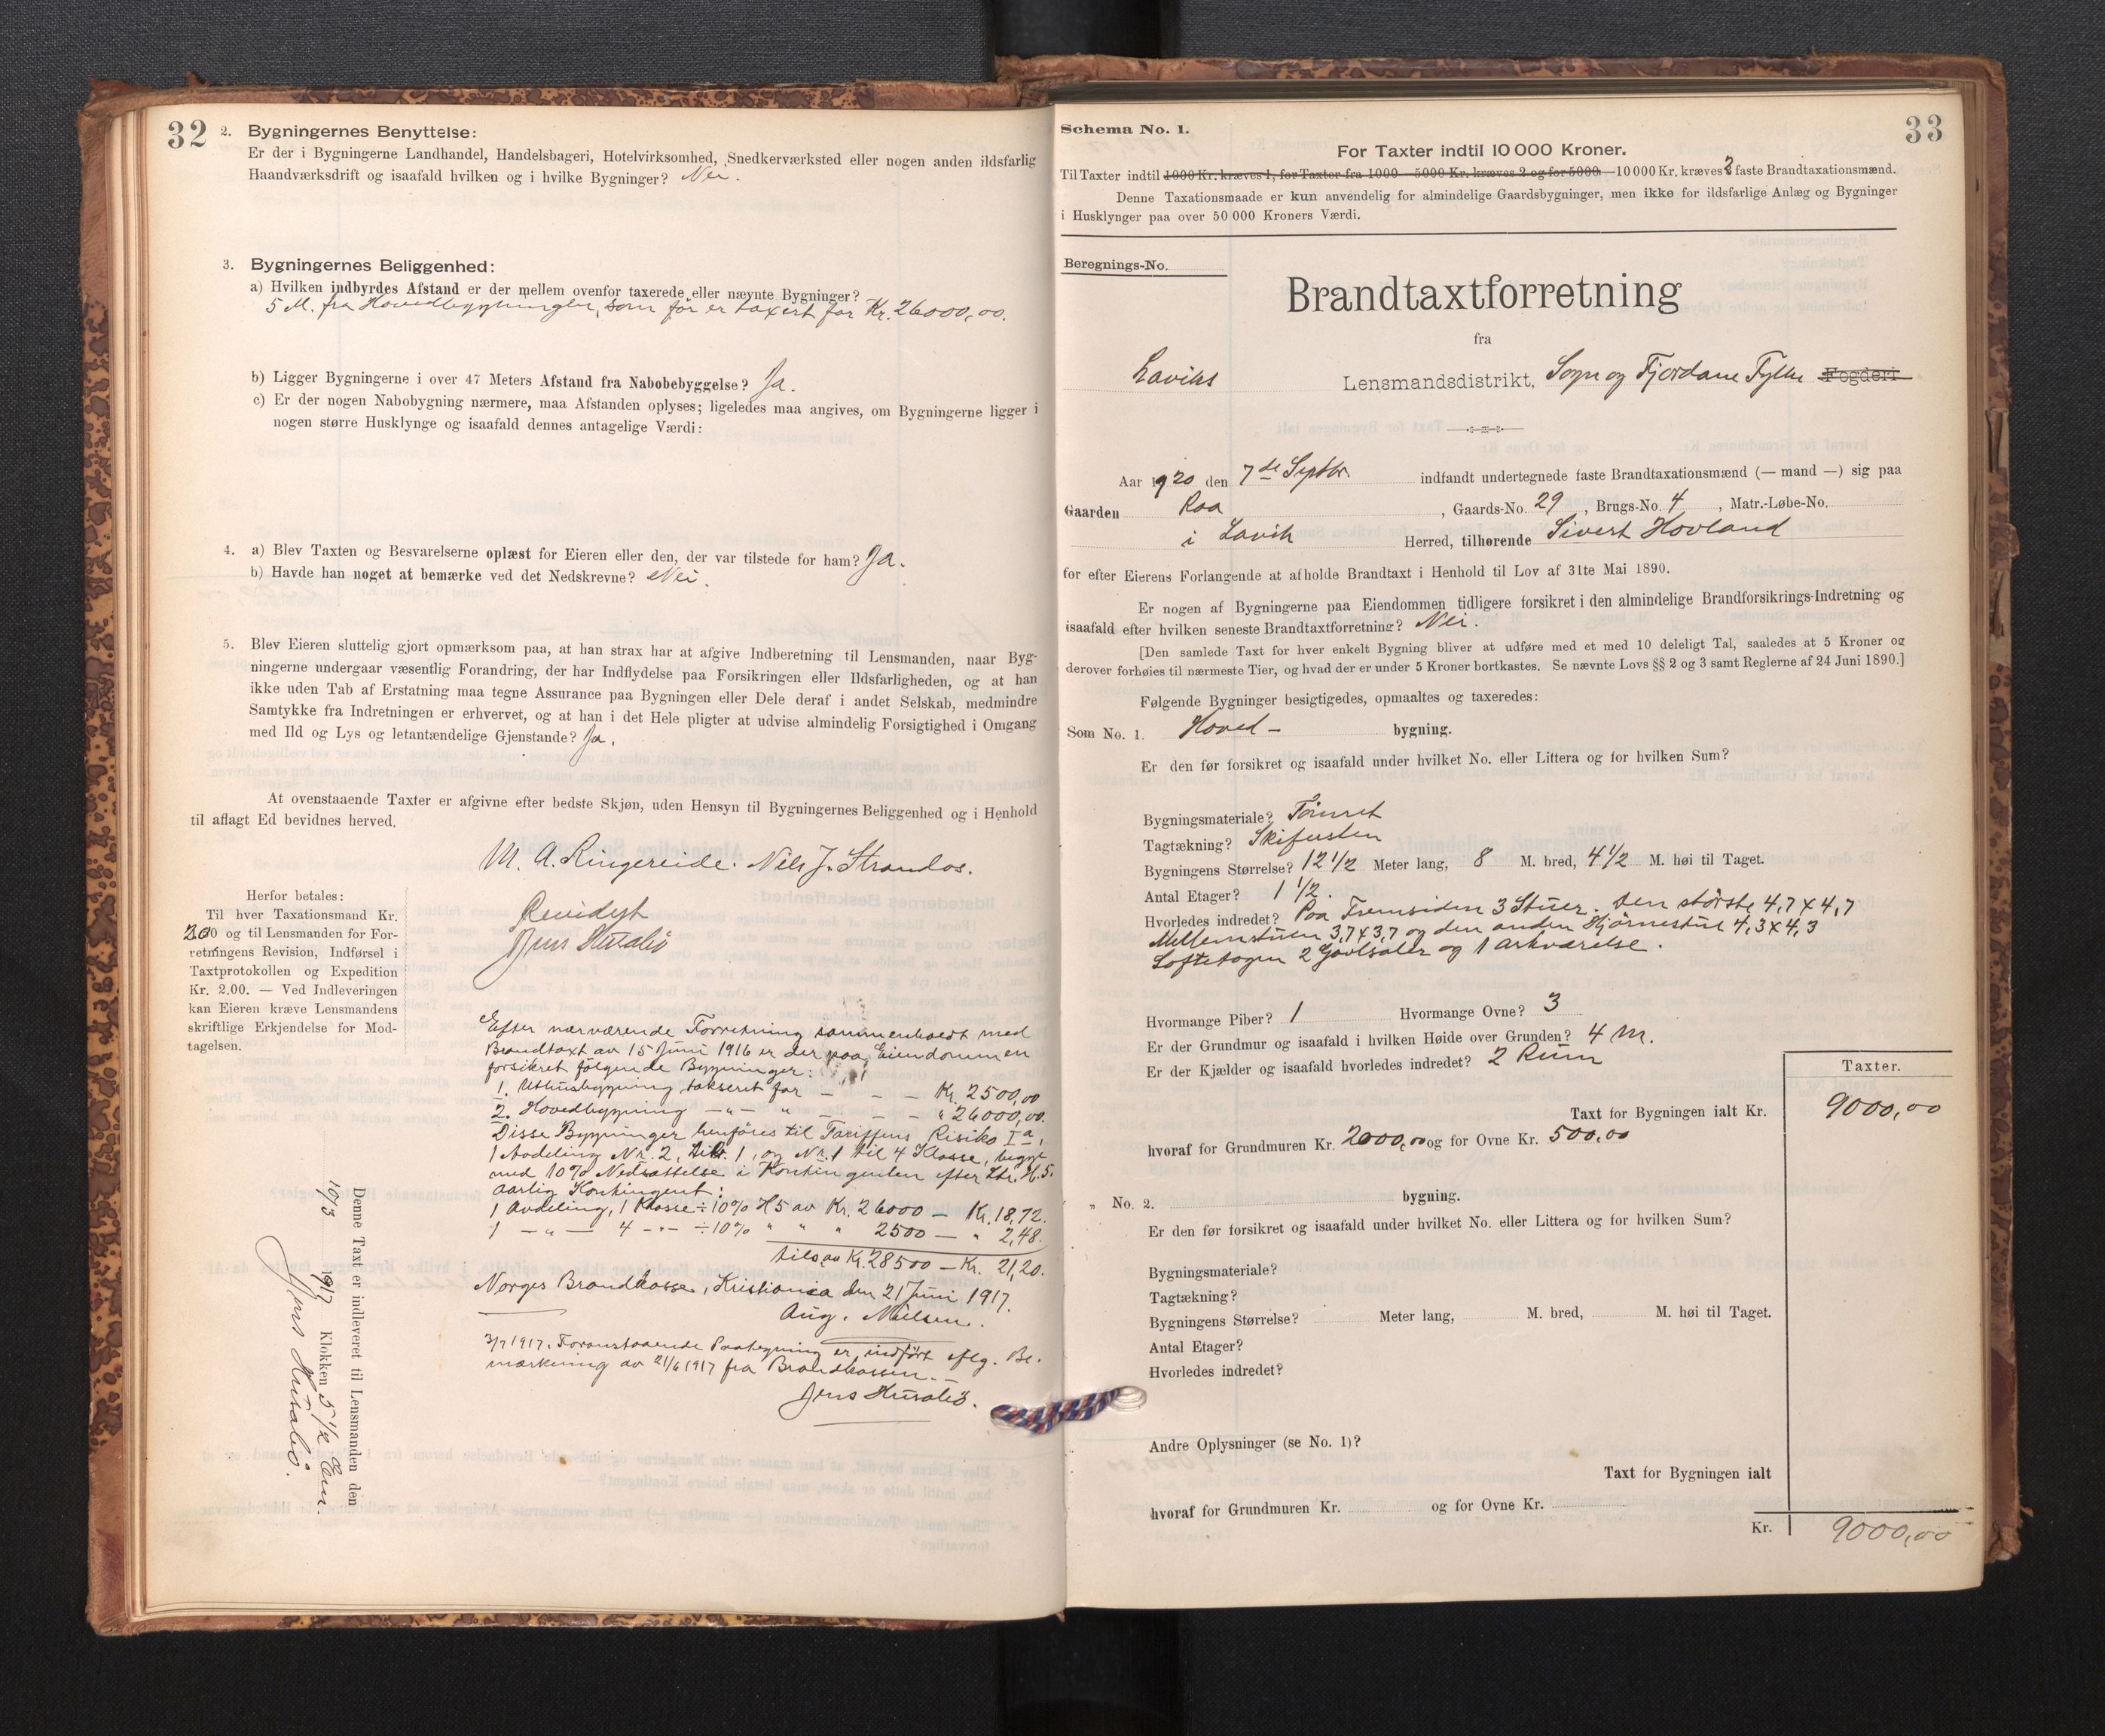 32
2. Bygningernes Benyttelse:
Er der i Bygningerne Landhandel, Handelsbageri, Hotelvirksomhed, Snedkerværksted eller nogen anden ildsfarlig
Haandværksdrift og isaafald hvilken og i hvilke Bygninger? Nei.
3. Bygningernes Beliggenhed:
a) Hvilken indbyrdes Afstand er der mellem ovenfor taxerede eller nævnte Bygninger?
5 M. fra Hovedbygningen, som før er taxert for Kr. 26000,00.
b) Ligger Bygningerne i over 47 Meters Afstand fra Nabobebyggelse? Ja.
c) Er der nogen Nabobygning nærmere, maa Afstanden oplyses; ligeledes maa angives, om Bygningerne ligger i
nogen større Husklynge og isaafald dennes antagelige Værdi:
4. a) Blev Taxten og Besvarelserne oplæst for Eieren eller den, der var tilstede for ham? Ja.
b) Havde han noget at bemærke ved det Nedskrevne? Nei.
5. Blev Eieren sluttelig gjort opmærksom paa, at han strax har at afgive Indberetning til Lensmanden, naar Byg-
ningerne undergaar væsentlig Forandring, der har Indflydelse paa Forsikringen eller Ildsfarligheden, og at han
ikke uden Tab af Erstatning maa tegne Assurance paa Bygningen eller Dele deraf i andet Selskab, medmindre
Samtykke fra Indretningen er erhvervet, og at han i det Hele pligter at udvise almindelig Forsigtighed i Omgang
med Ild og Lys og letantændelige Gjenstande? Ja.
At ovenstaaende Taxter er afgivne efter bedste Skjøn, uden Hensyn til Bygningernes Beliggenhed og i Henhold
til aflagt Ed bevidnes herved.
M. A. Ringereide. Nils J. Strandos.
Revidert
Jens Husabø
Herfor betales:
Til hver Taxationsmand Kr.
2.00 og til Lensmanden for For-
retningens Revision, Indførsel i
Taxtprotokollen og Expedition
Kr. 2.00. — Ved Indleveringen
kan Eieren kræve Lensmandens
skriftlige Erkjendelse for Mod-
tagelsen.
Efter nærværende Forretning sammenholdt med
Brandtaxt av 15 Juni 1916 er der paa Eiendommen
forsikret følgende Bygninger:
1. Uthusbygning takseret for — — — Kr. 2500,00
2. Hovedbygning —"— " — — — " 26000,00.
Disse Bygninger henføres til Tariffens Risiko Ia,
1 Avdeling Nr. 2, Litr. 1, og Nr. 1 til 4 Klasse, begge
med 10% Nedsættelse i Kontingenten efter Litr. H.5.
Aarlig Kontingent:
1 Avdeling, 1 Klasse ÷ 10% H5 av Kr. 26000 — Kr. 18,72.
1 —"— 4 —"— ÷ 10% " " " 2500 — " 2,48.
tils. av Kr. 28500 — Kr. 21,20.
Norges Brandkasse, Kristiania den 21 Juni 1917.
Aug. Nielsen.
3/7 1917. Foranstaaende Paategning er indført eflg. Be-
mærkning av 21/6 1917 fra Brandkassen.—
Jens Husabø.
Denne Taxt er indleveret til Lensmanden den
10/3 1917 Klokken 5 1/2 Em.
Jens Husabø.
33
Schema No. 1.
For Taxter indtil 10 000 Kroner.
Til Taxter indtil 1000 Kr. kræves 1, for Taxter fra 1000—5000 Kr. kræves 2 og for 5000—10 000 Kr. kræves 2 faste Brandtaxationsmænd.
Denne Taxationsmaade er kun anvendelig for almindelige Gaardsbygninger, men ikke for ildsfarlige Anlæg og Bygninger
i Husklynger paa over 50 000 Kroners Værdi.
Beregnings-No.
Brandtaxtforretning
fra
Laviks Lensmandsdistrikt, Sogn og Fjordane Fylke Fogderi
Aar 1920 den 7de Septbr. indfandt undertegnede faste Brandtaxationsmænd (— mand —) sig paa
Gaarden Raa, Gaards-No. 29, Brugs-No. 4, Matr.-Løbe-No.
i Lavik Herred, tilhørende Sivert Hovland
for efter Eierens Forlangende at afholde Brandtaxt i Henhold til Lov af 31te Mai 1890.
Er nogen af Bygningerne paa Eiendommen tidligere forsikret i den almindelige Brandforsikrings-Indretning og
isaafald efter hvilken seneste Brandtaxtforretning? Nei.
[Den samlede Taxt for hver enkelt Bygning bliver at udføre med et med 10 deleligt Tal, saaledes at 5 Kroner og
derover forhøies til nærmeste Tier, og hvad der er under 5 Kroner bortkastes. Se nævnte Lovs §§ 2 og 3 samt Reglerne af 24 Juni 1890.]
Følgende Bygninger besigtigedes, opmaaltes og taxeredes:
Som No. 1. Hoved- bygning.
Er den før forsikret og isaafald under hvilket No. eller Littera og for hvilken Sum?
Bygningsmateriale? Tømret
Tagtækning? Skifersten
Bygningens Størrelse? 12 1/2 Meter lang, 8 M. bred, 4 1/2 M. høi til Taget.
Antal Etager? 1 1/2.
Hvorledes indredet? Paa Fremsiden 3 Stuer. Den største 4,7 x 4,7
Mellemstuen 3,7 x 3,7 og den anden Hjørnestue 4,3 x 4,3
Loftetagen 2 Gavlsaler og 1 arkværelse.
Hvormange Piber? 1 Hvormange Ovne? 3
Er der Grundmur og isaafald i hvilken Høide over Grunden? 4 M.
Er der Kjælder og isaafald hvorledes indredet? 2 Rum
Taxter.
Taxt for Bygningen ialt Kr. 9000,00
hvoraf for Grundmuren Kr. 2000,00 og for Ovne Kr. 500,00
" No. 2. bygning.
Er den før forsikret og isaafald under hvilket No. eller Littera og for hvilken Sum?
Bygningsmateriale?
Tagtækning?
Bygningens Størrelse? Meter lang, M. bred, M. høi til Taget.
Antal Etager?
Hvorledes indredet?
Andre Oplysninger (se No. 1)?
Taxt for Bygningen ialt
hvoraf for Grundmuren Kr. og for Ovne Kr.
Kr. 9000,00